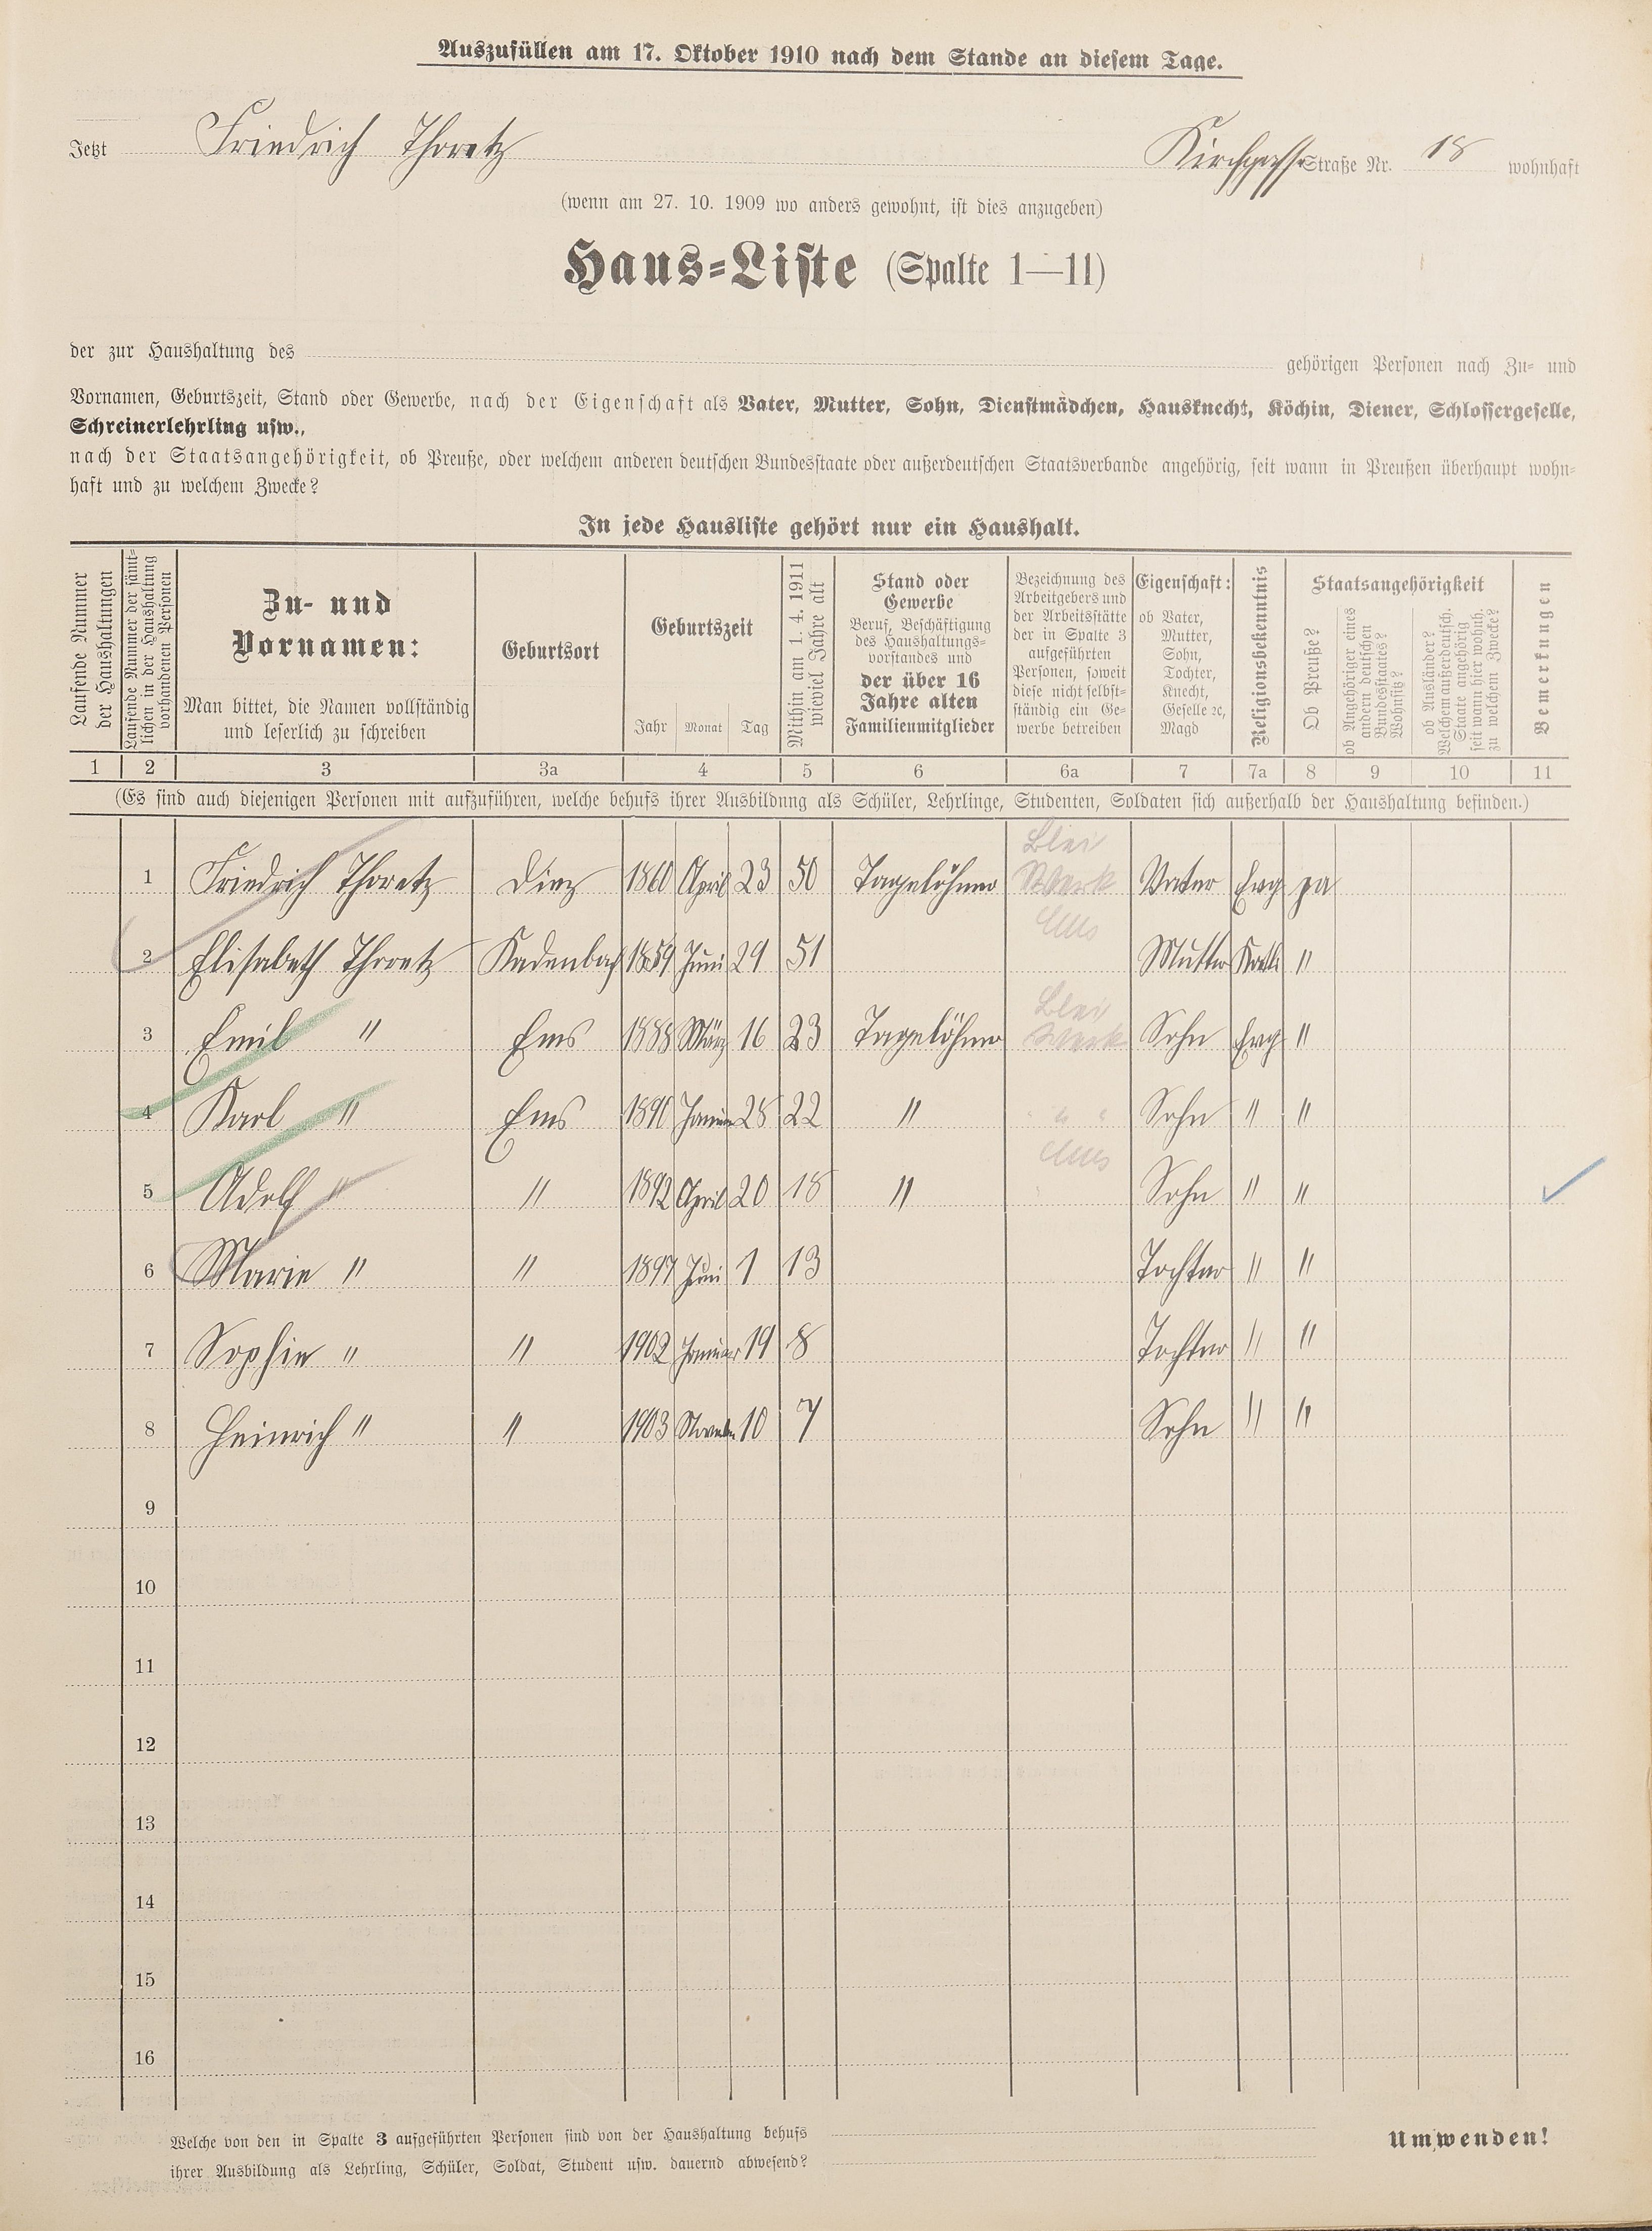 Auszufüllen am 17. Oktober 1910 nach dem Stande an diesem Tage.
Jetzt Friedrich Thoretz Kirchgasse Straße Nr. 18 wohnhaft
(wenn am 27. 10. 1909 wo anders gewohnt, ist dies anzugeben)
Haus=Liste (Spalte 1—11)
der zur Haushaltung des gehörigen Personen nach Zu- und
Vornamen, Geburtszeit, Stand oder Gewerbe, nach der Eigenschaft als Vater, Mutter, Sohn, Dienstmädchen, Hausknecht, Köchin, Diener, Schlossergeselle,
Schreinerlehrling usw.,
nach der Staatsangehörigkeit, ob Preuße, oder welchem anderen deutschen Bundesstaate oder außerdeutschen Staatsverbande angehörig, seit wann in Preußen überhaupt wohn-
haft und zu welchem Zwecke?
In jede Hausliste gehört nur ein Haushalt.
Laufende Nummer
der Haushaltungen
Laufende Nummer der sämt-
lichen in der Haushaltung
vorhandenen Personen
Zu- und
Vornamen:
Man bittet, die Namen vollständig
und leserlich zu schreiben
Geburtsort
Geburtszeit
Jahr Monat Tag
Mithin am 1. 4. 1911
wieviel Jahre alt
Stand oder
Gewerbe
Beruf, Beschäftigung
des Haushaltungs-
vorstandes und
der über 16
Jahre alten
Familienmitglieder
Bezeichnung des
Arbeitgebers und
der Arbeitsstätte
der in Spalte 3
aufgeführten
Personen, soweit
diese nicht selbst-
ständig ein Ge-
werbe betreiben
Eigenschaft:
ob Vater,
Mutter,
Sohn,
Tochter,
Knecht,
Geselle ꝛc,
Magd
Religionsbekenntnis
Staatsangehörigkeit
Ob Preuße?
ob Angehöriger eines
andern deutschen
Bundesstaates?
Wohnsitz?
ob Ausländer?
Welchem außerdeutsch.
Staate angehörig
seit wann hier wohnh.
zu welchem Zwecke?
Bemerkungen
1 2 3 3a 4 5 6 6a 7 7a 8 9 10 11
(Es sind auch diejenigen Personen mit aufzuführen, welche behufs ihrer Ausbildung als Schüler, Lehrlinge, Studenten, Soldaten sich außerhalb der Haushaltung befinden.)
1 Friedrich Thoretz Diez 1860 April 23 50 Tagelöhner Blei Werk Ems Vater Evg ja
2 Elisabeth Thoretz Kadenbach 1859 Juni 29 51 Mutter Kath "
3 Emil " Ems 1888 März 16 23 Tagelöhner Blei Werk Sohn Evg "
4 Karl " Ems 1890 Januar 28 22 " " " Ems Sohn " "
5 Adolf " " 1892 April 20 18 " Sohn " "
6 Marie " " 1897 Juni 1 13 Tochter " "
7 Sophie " " 1902 Januar 19 8 Tochter " "
8 Heinrich " " 1903 Novembr 10 7 Sohn " "
9
10
11
12
13
14
15
16
Welche von den in Spalte 3 aufgeführten Personen sind von der Haushaltung behufs
ihrer Ausbildung als Lehrling, Schüler, Soldat, Student usw. dauernd abwesend?
Umwenden!